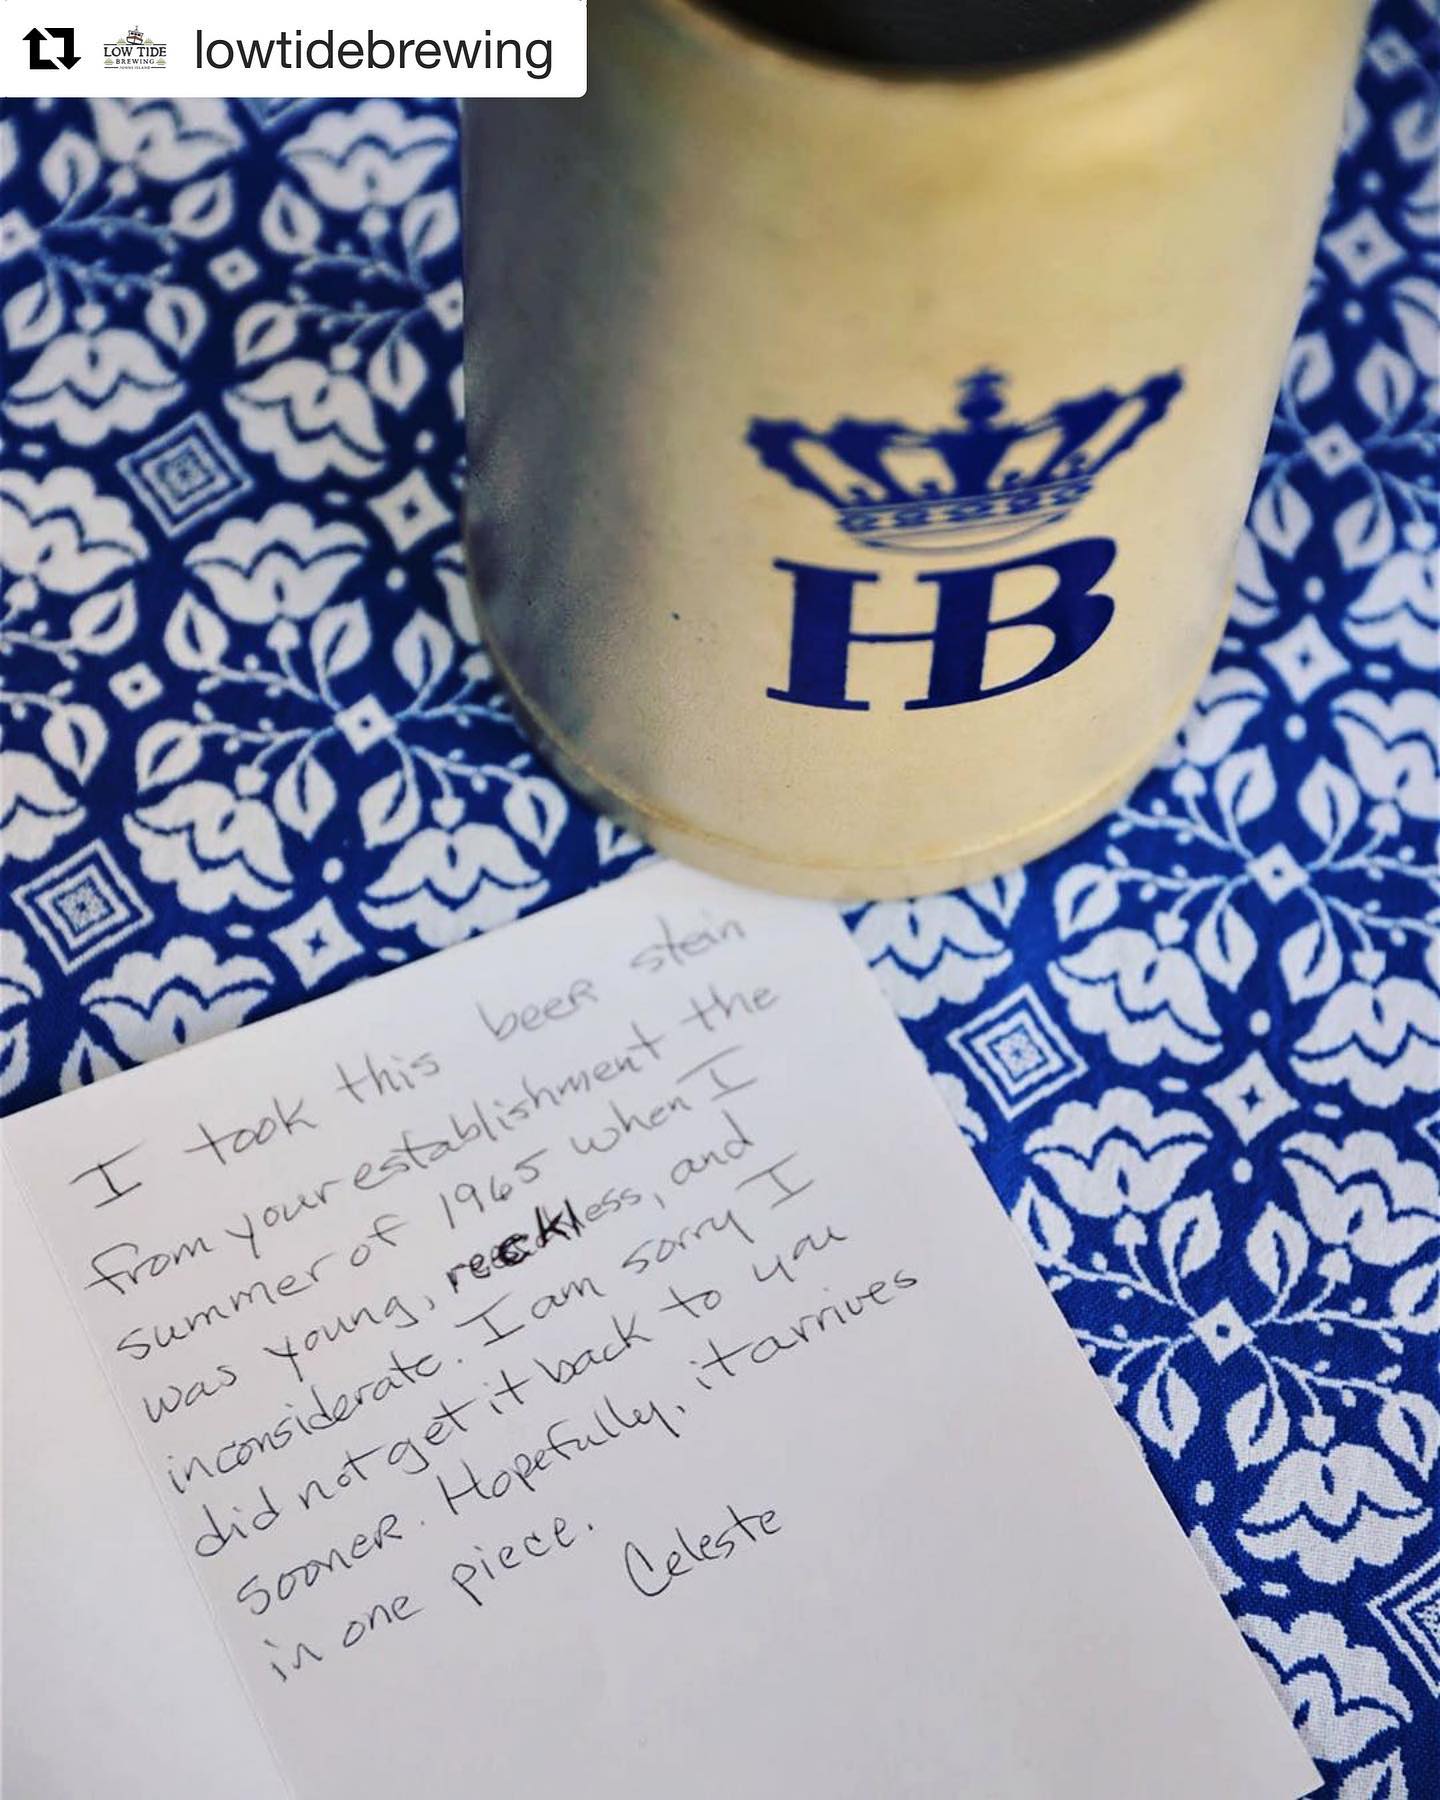 lowtidebrewing
LOW TIDE
BREWING
HB
I took this beer stein
from your establishment the
summer of 1965 when I
was young, reckless, and
inconsiderate. I am sorry I
did not get it back to you
sooner. Hopefully, it arrives
in one piece.
Celeste